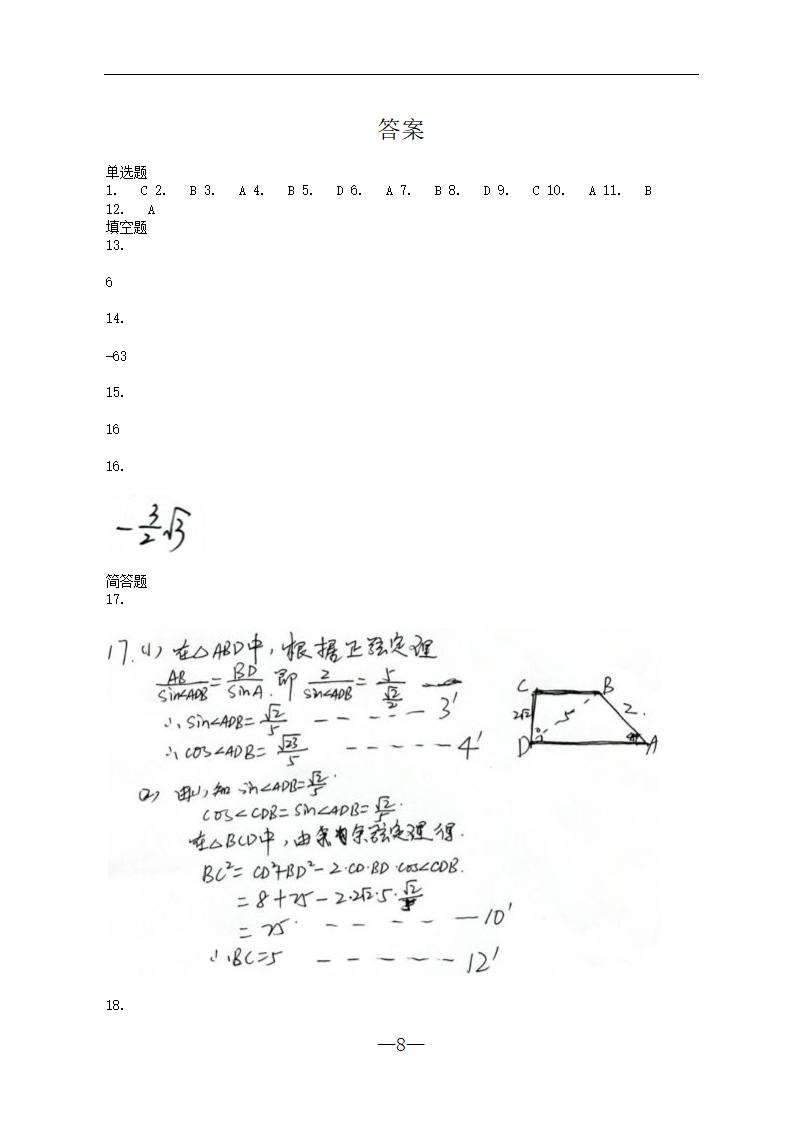 答案
单选题
1. C 2. B 3. A 4. B 5. D 6. A 7. B 8. D 9. C 10. A 11. B
12. A
填空题
13.
6
14.
-63
15.
16
16.
-3/2√3
简答题
17.
17.(1) 在△ABD中,根据正弦定理
AB/sin∠ADB=BD/sinA. 即 2/sin∠ADB=5/(√2/2)
∴sin∠ADB=√2/5 ----- 3'
∴cos∠ADB=√23/5 ----- 4'
C B
2√2 5 2
D A
(2) 由(1)知 sin∠ADB=√2/5.
cos∠CDB=sin∠ADB=√2/5.
在△BCD中,由余弦定理得.
BC²=CD²+BD²-2·CD·BD·cos∠CDB.
=8+25-2·2√2·5·√2/5
=25. ----- 10'
∴BC=5 ----- 12'
18.
—8—